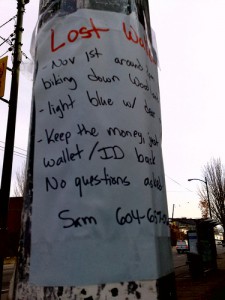 Lost
- Nov 1st around
biking down
- light blue w/
- Keep the money, just
wallet/ID back
No questions asked
Sam 604-